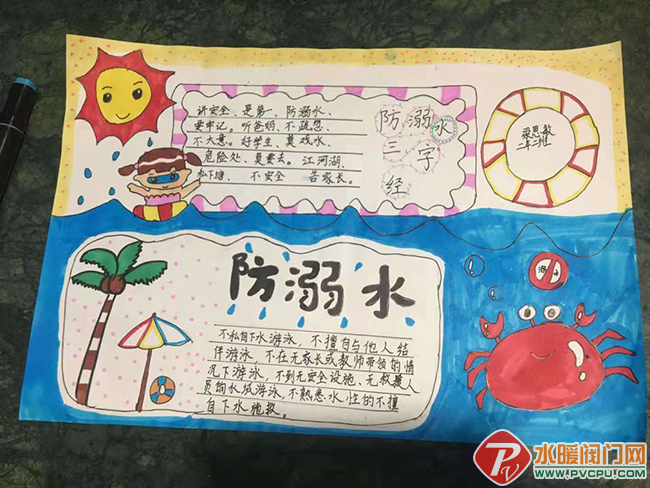 讲安全、是第一 防溺水、
要牢记。听爸妈、不疏忽、
不大意。好学生、莫戏水、
危险处、莫要去。江河湖、
私下塘、不安全 告家长。
防溺水
三字
经
二年二班
防溺水
不私自下水游泳，不擅自与他人结
伴游泳，不在无家长或教师带领的情
况下游泳，不到无安全设施、无救援人
员的水域游泳，不熟悉水性的不擅
自下水施救。
水暖阀门网
WWW.PVCPU.COM